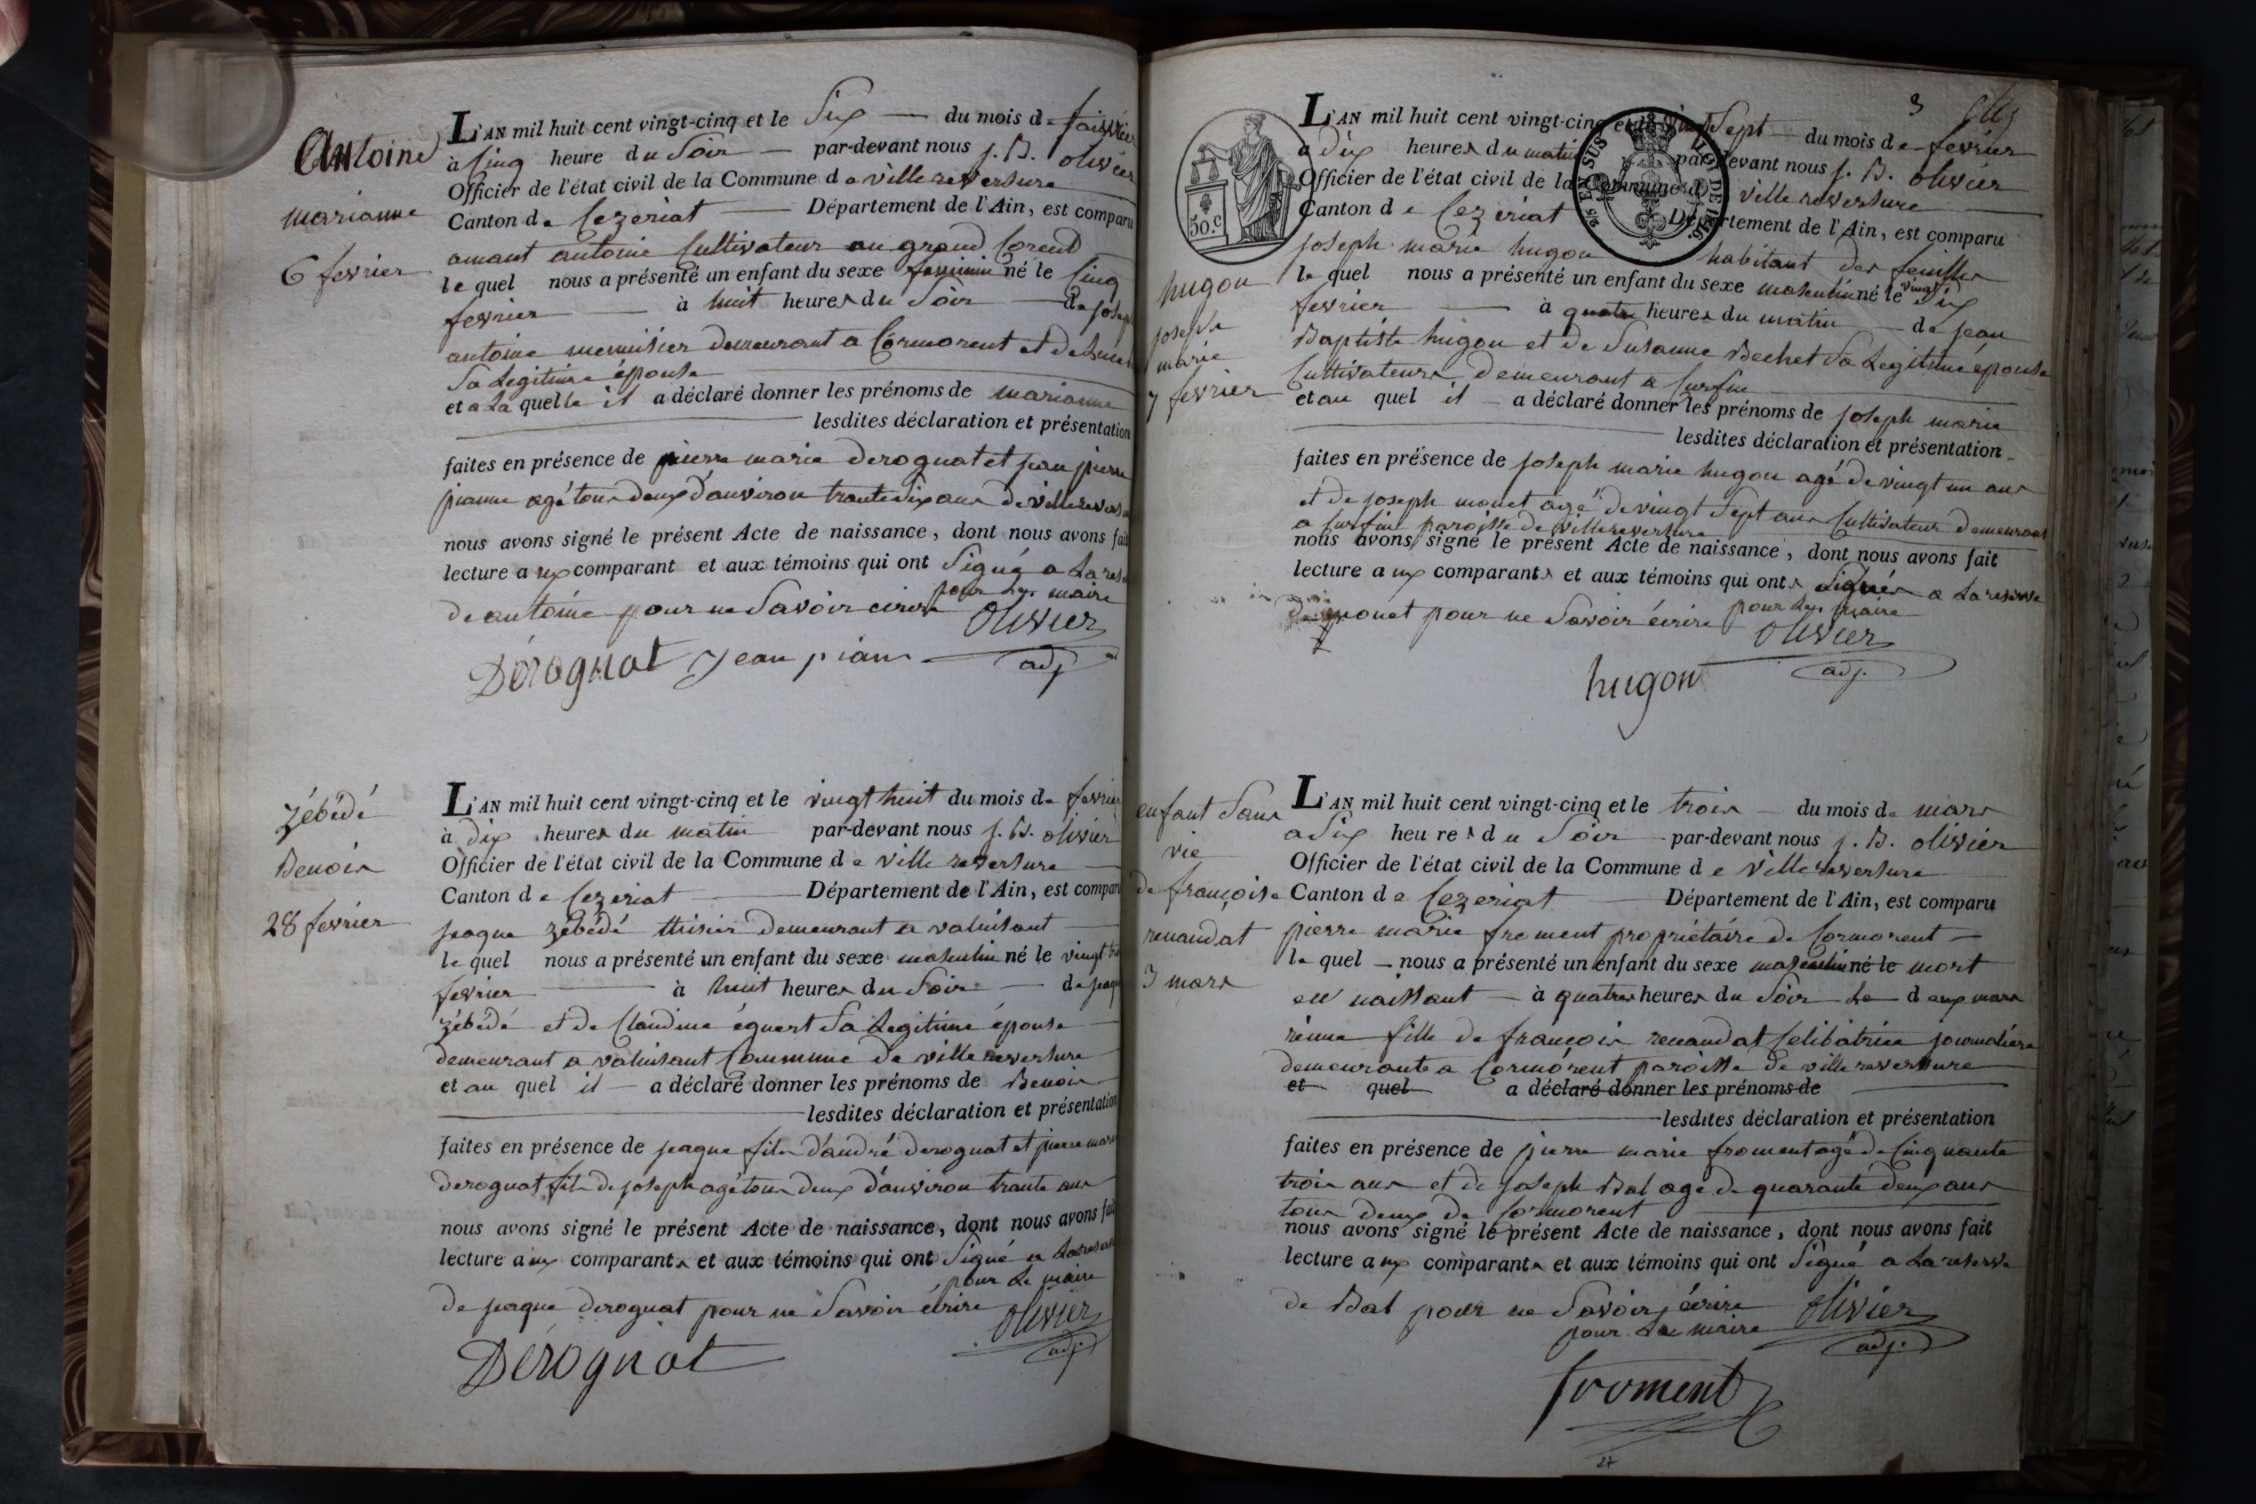 Antoine
marianne
6 fevrier
L'AN mil huit cent vingt-cinq et le Six du mois de faivrier
à Cinq heure du Soir par-devant nous J. B. olivier
Officier de l'état civil de la Commune de villereversure
Canton de Cezeriat Département de l'Ain, est comparu
amant antoine Cultivateur au grand Corent
le quel nous a présenté un enfant du sexe feminin né le Cinq
fevrier à huit heures du Soir de joseph
antoine menuisier demeurant a Cormorent et de
Sa Legitime épouse
et a La quelle il a déclaré donner les prénoms de marianne
lesdites déclaration et présentation
faites en présence de pierre marie derognat et jean pierre
pianne agé tous deux d'anviron trante Six ans de villereversure
nous avons signé le présent Acte de naissance, dont nous avons fait
lecture aux comparant et aux témoins qui ont Signé a La reserve
de antoine pour ne Savoir écrire
pour Le maire
olivier
adj
Dérognat jean pian
zébédé
Benois
28 fevrier
L'AN mil huit cent vingt-cinq et le vingt huit du mois de fevrier
à Dix heures du matin par-devant nous J. B. olivier
Officier de l'état civil de la Commune de ville reversure
Canton de Cezeriat Département de l'Ain, est comparu
jaque zébédé thisier demeurant a valuisant
le quel nous a présenté un enfant du sexe masculin né le vingt
fevrier à huit heures du Soir de jaque
zébédé et de Claudine éguert Sa Legitime épouse
demeurant a valuisant Commune de ville reversure
et au quel il a déclaré donner les prénoms de Benois
lesdites déclaration et présentation
faites en présence de jaque fils d'andré derognat et pierre marie
derognat fils de joseph agé tous deux d'anviron trante ans
nous avons signé le présent Acte de naissance, dont nous avons fait
lecture aux comparants et aux témoins qui ont Signé a La reserve
de jaque derognat pour ne Savoir écrire
pour Le maire
olivier
adj
Dérognat
3
50 C
25 EN SUS
hugon
joseph
marie
7 fevrier
L'AN mil huit cent vingt-cinq et le vingt Sept du mois de fevrier
a dix heures du matin par-devant nous J. B. olivier
Officier de l'état civil de la Commune d ville reversure
Canton de Cezeriat Département de l'Ain, est comparu
joseph marie hugon habitant des feuilles
le quel nous a présenté un enfant du sexe masculin né le vingt Six
fevrier à quatre heures du matin de jean
Baptiste hugon et de Susanne Bechet Sa Legitime épouse
Cultivateurs demeurant a Surfin
et au quel il a déclaré donner les prénoms de joseph marie
lesdites déclaration et présentation
faites en présence de joseph marie hugon agé de vingt un ans
et de joseph monet agé de vingt Sept ans Cultivateur demeurant
a Surfin paroisse de villereversure
nous avons signé le présent Acte de naissance, dont nous avons fait
lecture aux comparants et aux témoins qui ont Signés a La reserve
de monet pour ne Savoir écrire
pour Le maire
olivier
adj.
hugon
enfant Sans
vie
de françoise
renaudat
3 mars
L'AN mil huit cent vingt-cinq et le trois du mois de mars
a Six heures du Soir par-devant nous J. B. olivier
Officier de l'état civil de la Commune de Ville reversure
Canton de Cezeriat Département de l'Ain, est comparu
pierre marie froment propriétaire de Cormorent
le quel nous a présenté un enfant du sexe masculin né le mort
en naissant à quatre heures du Soir Le deux mars
fille de françois renaudat Celibatrice journaliére
demeurante a Cormorent paroisse de ville reversure
et quel a déclaré donner les prénoms de
lesdites déclaration et présentation
faites en présence de pierre marie froment agé de Cinquante
trois ans et de joseph Bal agé de quarante deux ans
tous deux de Cormorent
nous avons signé le présent Acte de naissance, dont nous avons fait
lecture aux comparants et aux témoins qui ont Signé a La reserve
de Bal pour ne Savoir écrire
pour Le maire
olivier
adj.
froment